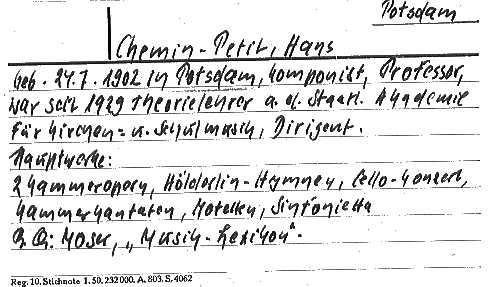 Potsdam
Chemin-Petit, Hans
Geb. 24.7.1902 in Potsdam, Komponist, Professor,
war seit 1929 Theorielehrer a. d. Staatl. Akademie
für Kirchen= u. Schulmusik, Dirigent.
Hauptwerke:
2 Kammeropern, Hölderlin-Hymnen, Cello-Konzert,
Kammerkantaten, Motetten, Sinfonietta
Q.Q.: Moser, „Musik-Lexikon“.
Reg. 10. Stichnote 1. 50. 232000. A. 803. S. 4062